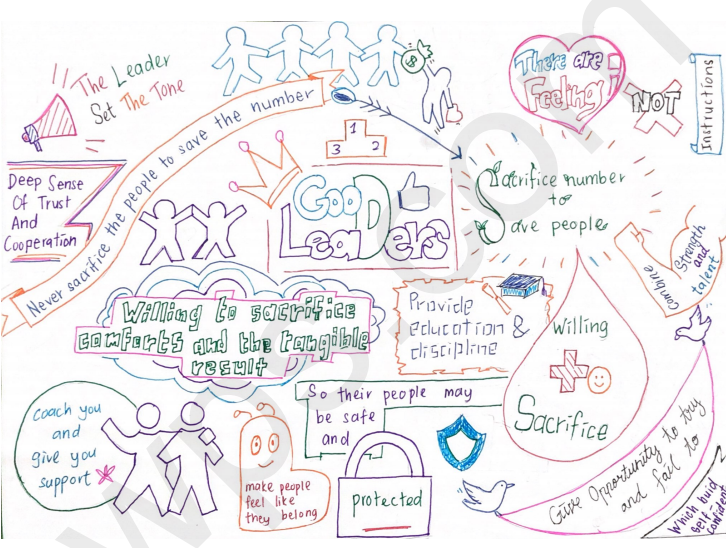 The Leader
Set The Tone
Never sacrifice the people to save the number
$
There are
Feeling
NOT
Instructions
1
3 2
Deep Sense
Of Trust
And
Cooperation
GooD
LeaDers
Sacrifice number
to
Save people
combine
Strength
and
talent
Willing to sacrifice
comforts and the tangible
result
Provide
education &
discipline
Willing
Sacrifice
Coach you
and
give you
support
So their people may
be safe
and
protected
make people
feel like
they belong
Give Opportunity to try
and fail to
Which buid
self-
confident